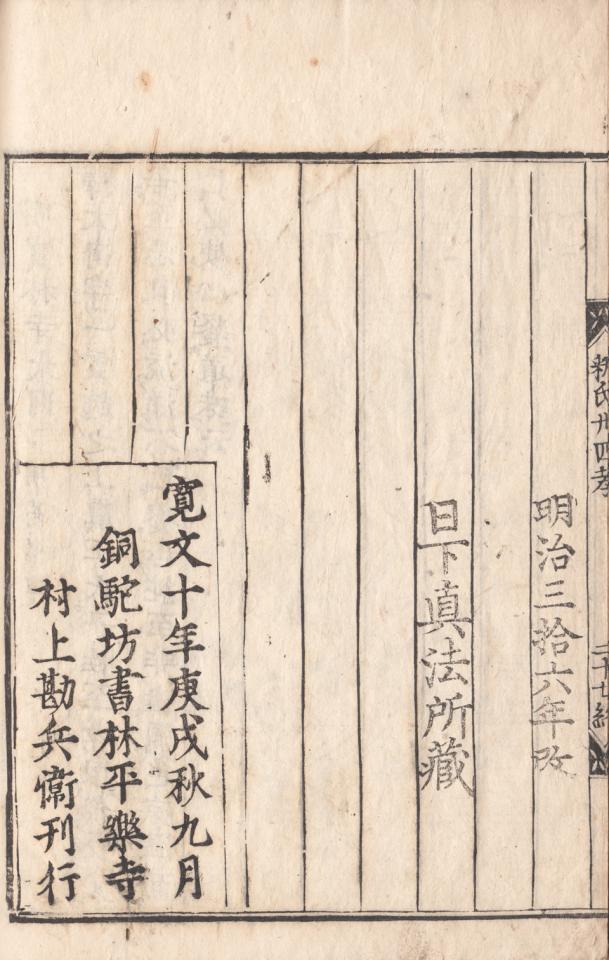 釈氏廿四孝
二十七終
明治三拾六年改
日下眞法所藏
寛文十年庚戌秋九月
銅駝坊書林平樂寺
村上勘兵衞刊行